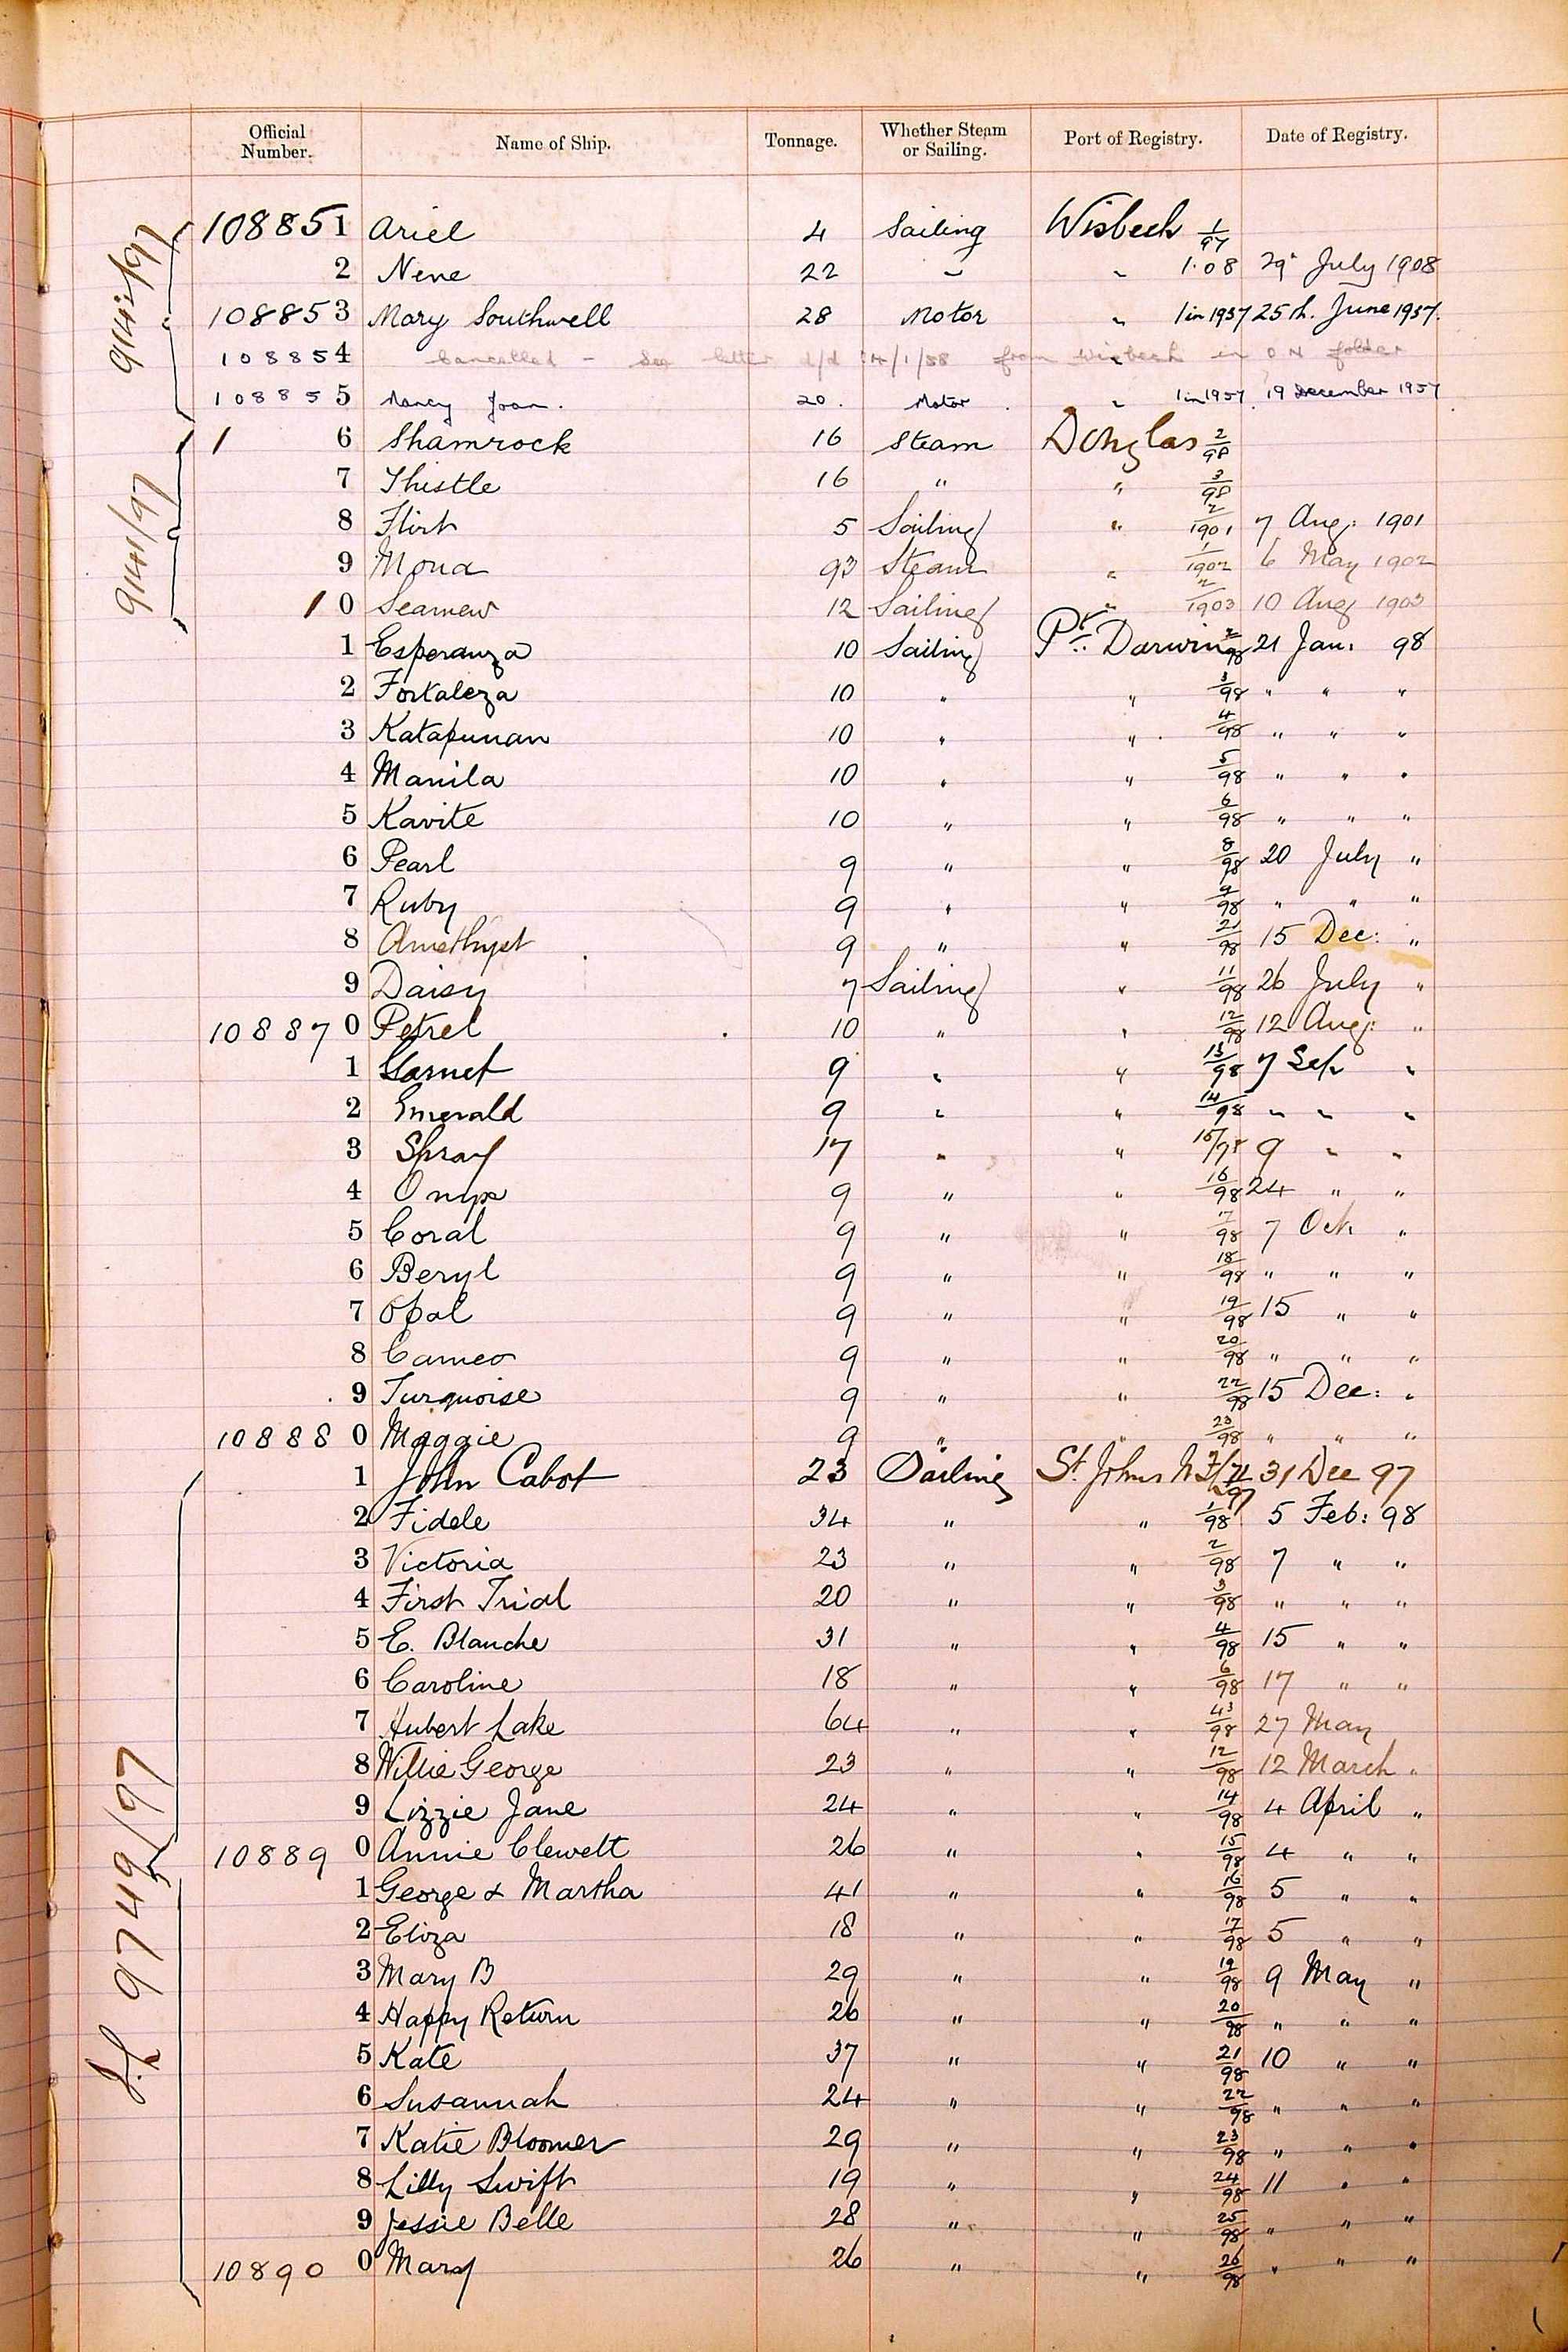 Official Number. Name of Ship. Tonnage. Whether Steam or Sailing. Port of Registry. Date of Registry.
108851 Ariel 4 Sailing Wisbech 1/97
2 Nene 22 " " 1.08 29 July 1908
108853 Mary Southwell 28 Motor " 1 in 1937 25th. June 1937.
108854 Cancelled - See letter d/d 14/1/58 from Wisbech in O N folder
108855 Nancy Joan. 20. Motor " 1 in 1957. 19 December 1957
9142/97
1 6 Shamrock 16 Steam Douglas 2/98
7 Thistle 16 " " 3/98
8 Flirt 5 Sailing " 2/1901 7 Aug: 1901
9 Mona 93 Steam " 1/1902 6 May 1902
1 0 Seamew 12 Sailing " 2/1903 10 Aug 1903
9141/97
1 Esperanza 10 Sailing Pt. Darwin 2/98 21 Jan: 98
2 Fortaleza 10 " " 3/98 " " "
3 Katapunan 10 " " 4/98 " " "
4 Manila 10 " " 5/98 " " "
5 Kavite 10 " " 6/98 " " "
6 Pearl 9 " " 8/98 20 July "
7 Ruby 9 " " 9/98 " " "
8 Amethyst 9 " " 21/98 15 Dec: "
9 Daisy 7 Sailing " 11/98 26 July "
108870 Petrel 10 " " 12/98 12 Aug: "
1 Garnet 9 " " 13/98 7 Sep "
2 Emerald 9 " " 14/98 " " "
3 Spray 17 " " 15/98 9 " "
4 Onyx 9 " " 16/98 24 " "
5 Coral 9 " " 17/98 7 Oct "
6 Beryl 9 " " 18/98 " " "
7 Opal 9 " " 19/98 15 " "
8 Cameo 9 " " 20/98 " " "
9 Turquoise 9 " " 22/98 15 Dec: "
108880 Maggie 9 " " 23/98 " " "
1 John Cabot 23 Sailing St. Johns N F/ 71/97 31 Dec 97
2 Fidele 34 " " 1/98 5 Feb: 98
3 Victoria 23 " " 2/98 7 " "
4 First Trial 20 " " 3/98 " " "
5 E. Blanche 31 " " 4/98 15 " "
6 Caroline 18 " " 6/98 17 " "
7 Hubert Lake 64 " " 43/98 27 May
8 Willie George 23 " " 12/98 12 March "
9 Lizzie Jane 24 " " 14/98 4 April "
108890 Annie Clewett 26 " " 15/98 4 " "
1 George & Martha 41 " " 16/98 5 " "
2 Eliza 18 " " 17/98 5 " "
3 Mary B 29 " " 19/98 9 May "
4 Happy Return 26 " " 20/98 " " "
5 Kate 37 " " 21/98 10 " "
6 Susannah 24 " " 22/98 " " "
7 Katie Bloomer 29 " " 23/98 " " "
8 Lilly Swift 19 " " 24/98 11 " "
9 Jessie Belle 28 " " 25/98 " " "
108900 Mary 26 " " 26/98 " " "
9749/97